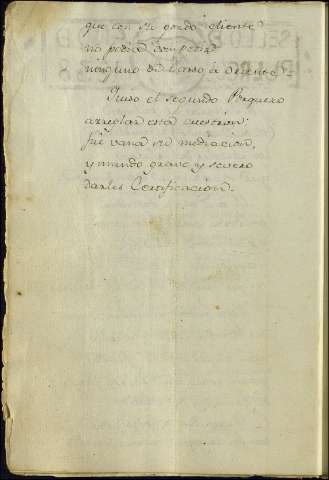 que con su gordo cliente
no podia competir
ninguno de Lasso à
Quiso el segundo Baquero
arreglar esta cuestion;
fué vana su mediacion,
y mandó grave y severo
darles Certificacion.
SELLO